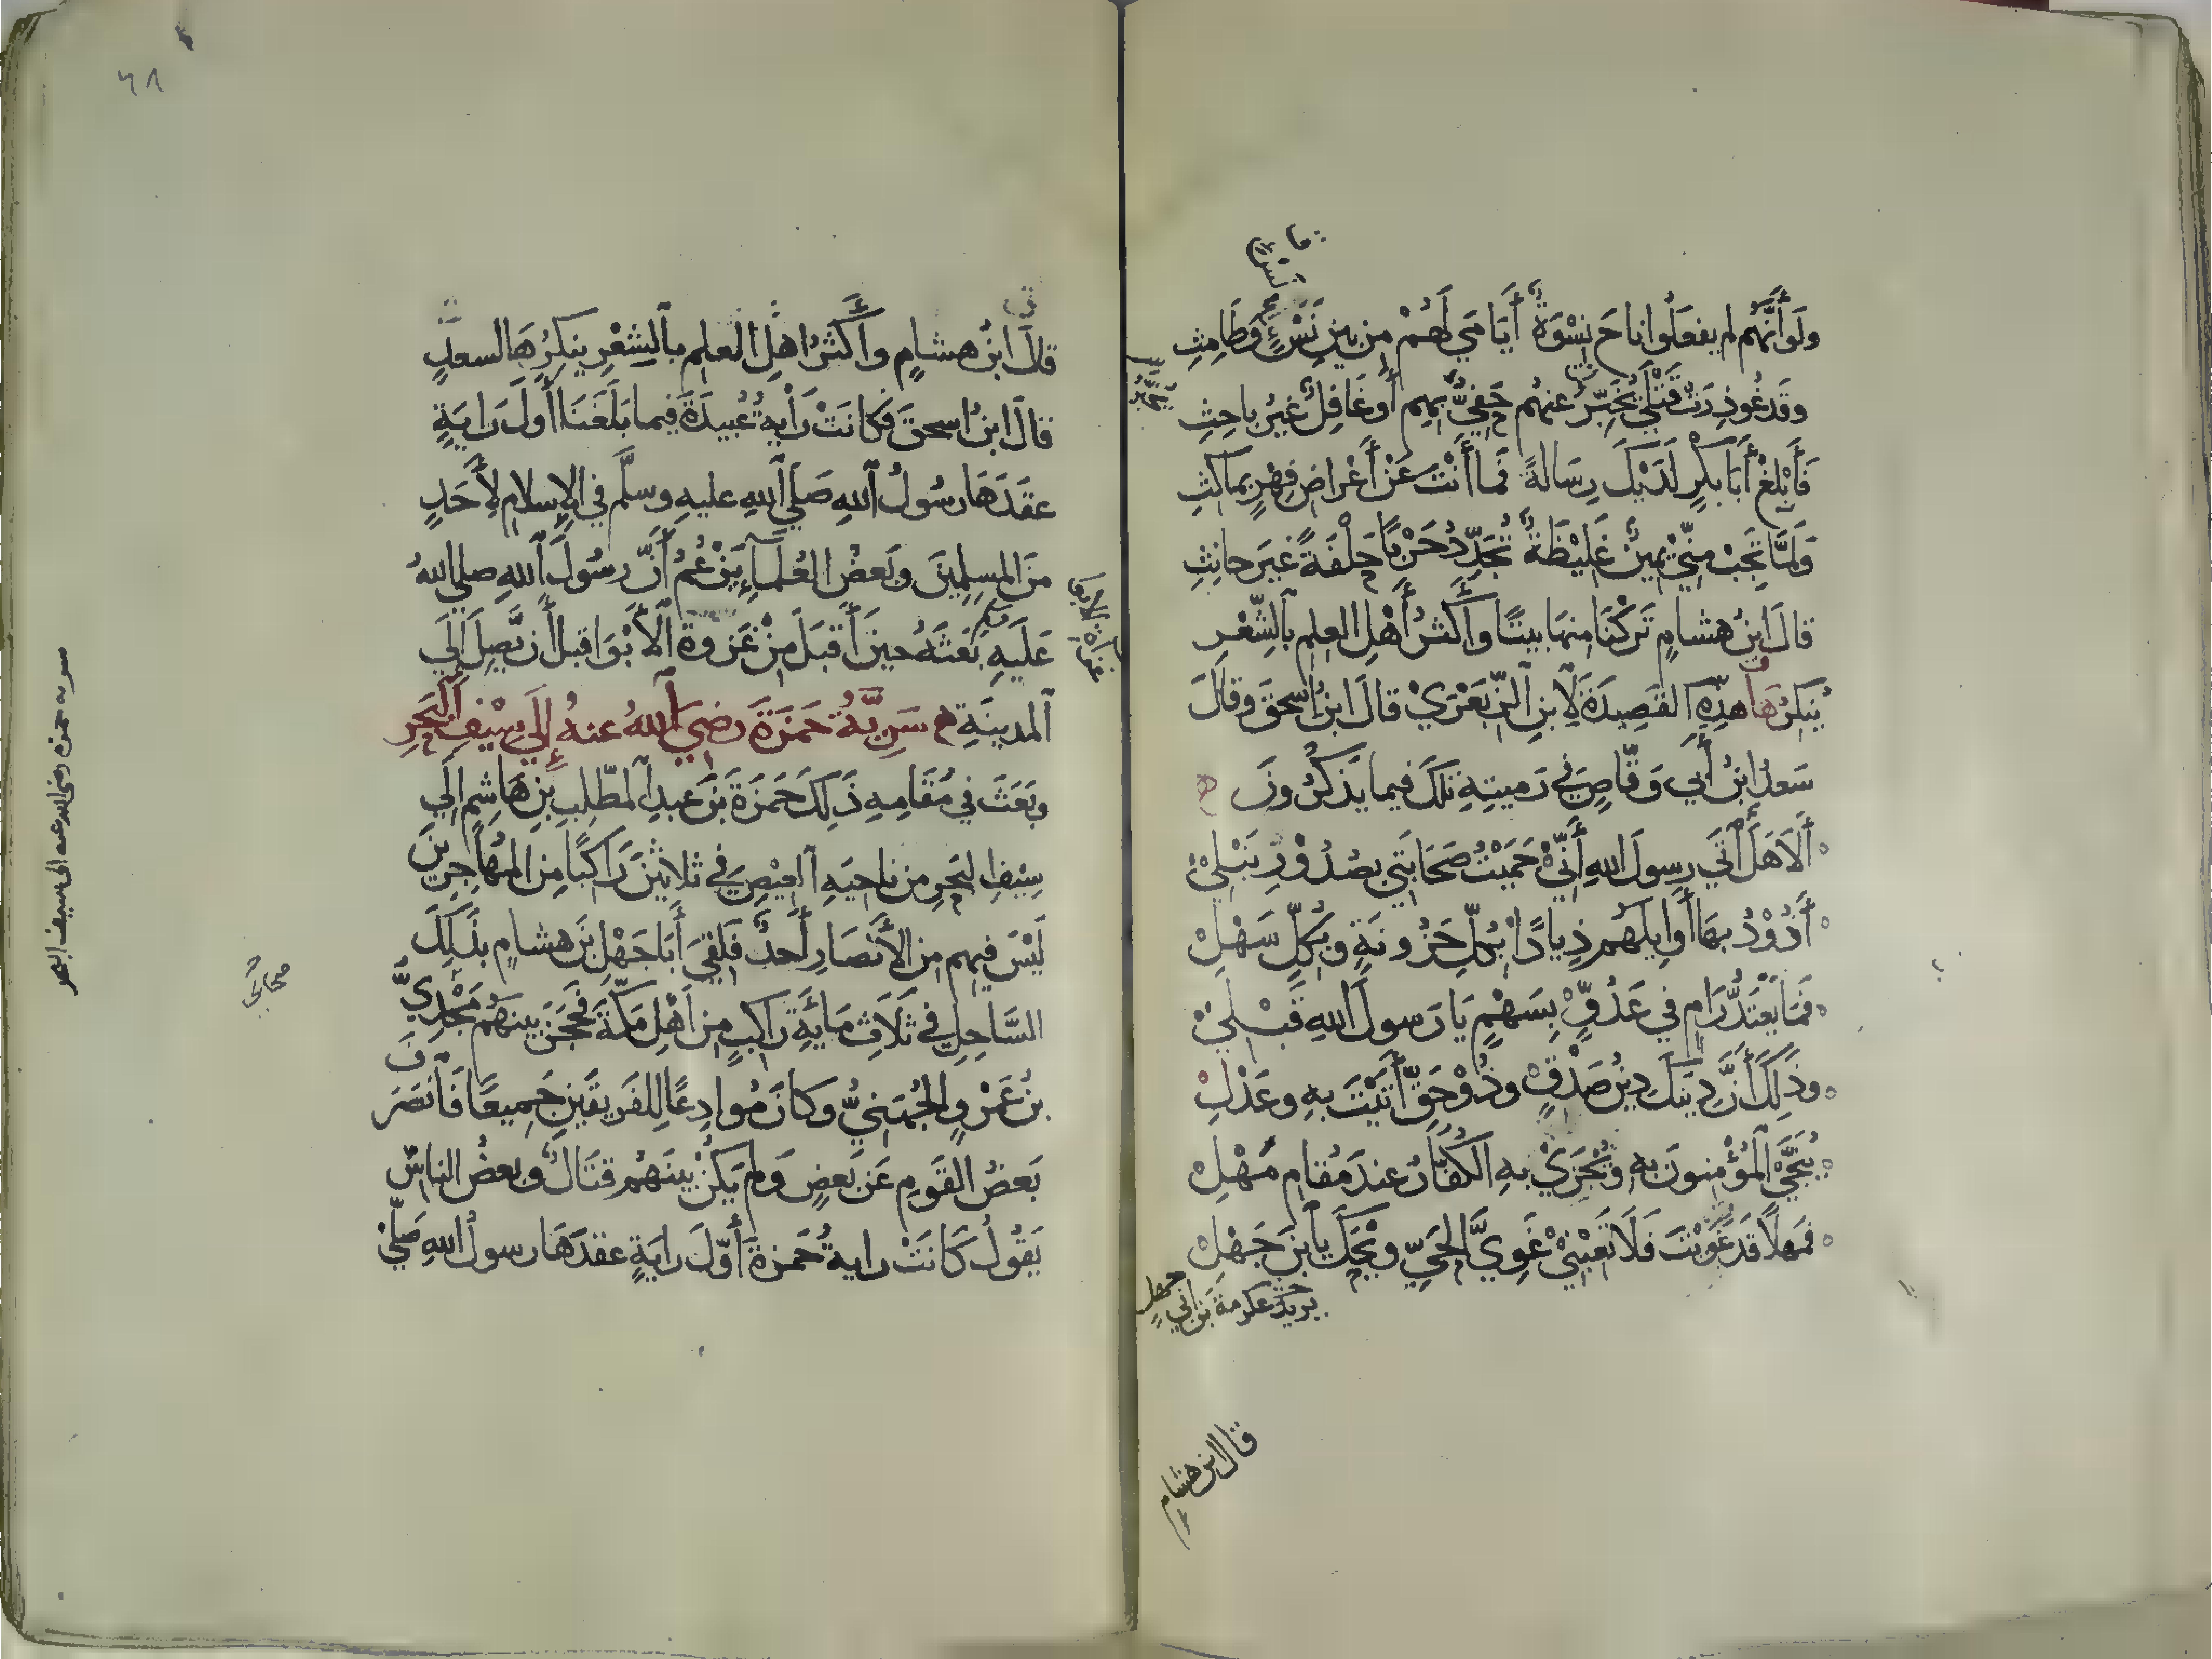 ولَوْ أَنَّهُم لم يفعَلُوا ناحَ نِسْوَةٌ أَيَامَي لَهُمْ مِن بين نَسْئٍ وَطَامِثِ
وقَد غُودِرَتْ قَتْلَي يُخَبِّرُ عنهُم حَفِيٌّ بِهِم أَو غَافِلٌ غيرُ باحِثِ
فَأَبْلِغْ أَبَا بَكْرٍ لَدَيْكَ رِسَالةً فَما أَنْتَ عَنْ أَعْراضِ فِهْرٍ بماكثِ
وَلَمَّا تَجِبْ مِنِّي يَمِينٌ غَلِيْظَةٌ تُجَدِّدُ حَرْبًا حِلْفَةً غَيرَ حانِثِ
قالَ ابنُ هشامٍ تَرَكْنَا منهَا بيتًا وأكثرُ أَهْلِ العلمِ بالشِّعْرِ
يُنكِرُ هَذِهِ القَصِيدَةَ لِابنِ الزِّبَعْرَيْ قالَ ابنُ اسحقَ وقالَ
سَعدُ ابنُ أَبي وَقَّاصٍ في رَميتِهِ تلكَ فيما يَذكُرُونَ
أَلَا هَلْ أَتَي رسولَ اللهِ أَنِّيْ حَمَيْتُ صَحَابَتي بصُدُوْرِ نَبْلِيْ
أَذُوْدُ بهَا أَوَايِلَهُم ذِيادًا بِكُلِّ حُزُونَةٍ وبِكُلِّ سَهْلِ
فَمَا يَعْتَدُّ رَامٍ في عَدُوٍّ بِسَهْمٍ يَا رَسولَ اللهِ قَبْلِيْ
وذَلِكَ أَنَّ دِينَكَ دِينُ صَدْقٍ وذُوْ حَقٍّ أَتَيْتَ بهِ وعَدْلِ
يُنَجَّيْ المُؤْمِنونَ بهِ ويُجْزَيْ بهِ الكُفَّارُ عندَ مَقامِ مَهْلِ
فَمَهلًا قَد غَوَيْتَ فَلَا تَعِبْنِيْ غَوِيَّ الحَيِّ ويْحَكَ يا ابنَ جَهْلِ
يريد عكرمةَ بن ابي جهل
قال ابن هشامٍ
٦٨
قالَ ابنُ هشامٍ وأكثرُ اهلِ العلمِ بالشِعْرِ ينكِرُهَا لسعدٍ
قالَ ابنُ اسحقَ فكانَتْ رَايةُ عُبيدَةَ فيما بَلَغَنَا أوَلَ رَايَةٍ
عقَدَهَا رسُولُ اللهِ صَلَي اللهِ عليهِ وسلَّم في الإسلام لِأَحَدٍ
منَ المسلِمِينَ وبَعضُ العُلَمآءِ يَزْعُمُ أَنَّ رسُولَ اللهِ صلي اللهُ
عَلَيهِ بَعَثَهُ حينَ أَقبَلَ مِنْ غَزوةِ الأَبْوَا قبلَ أَن يَّصِلَ إلَي
المدينَةِ سَرِيَّةُ حَمزَةَ رضيَ اللهُ عنهُ إلَي سِيْفِ البَحرِ
وبَعَثَ في مُقَامِهِ ذَلِكَ حَمزَةَ بنَ عبدِ المطَّلِبِ بنِ هَاشِمٍ إلَي
سِيْفِ البَحرِ من ناحيَةِ العِيْصِ في ثلاثينَ رَاكبًا مِن المهَاجِرينَ
لَيْسَ فيهِم مِن الأَنصَارِ أَحدٌ فَلَقِيَ أَبَا جَهْلِ بنَ هشامٍ بذَلِكَ
السَّاحِلِ في ثَلَاثِ مَايَةِ رَاكبٍ مِن أَهْلِ مَكَّةَ فَحَجَزَ بينَهُم مَجْدِيُّ
بنُ عَمْرٍو الجُهَنِيُّ وكانَ مُوادِعًا لِلفَريقَينِ جَميعًا فَانْصَرَفَ
بَعضُ القَومِ عَن بَعضٍ وَلم يَكُنْ بينَهُم قتَالٌ وبعضُ الناسِ
يَقُولُ كَانَتْ رايةُ حَمزةَ أَوَّلَ رايَةٍ عقدَهَا رسولُ اللهِ صَلَّي
سريه حمزه رضى الله عنه الى سيف البحر